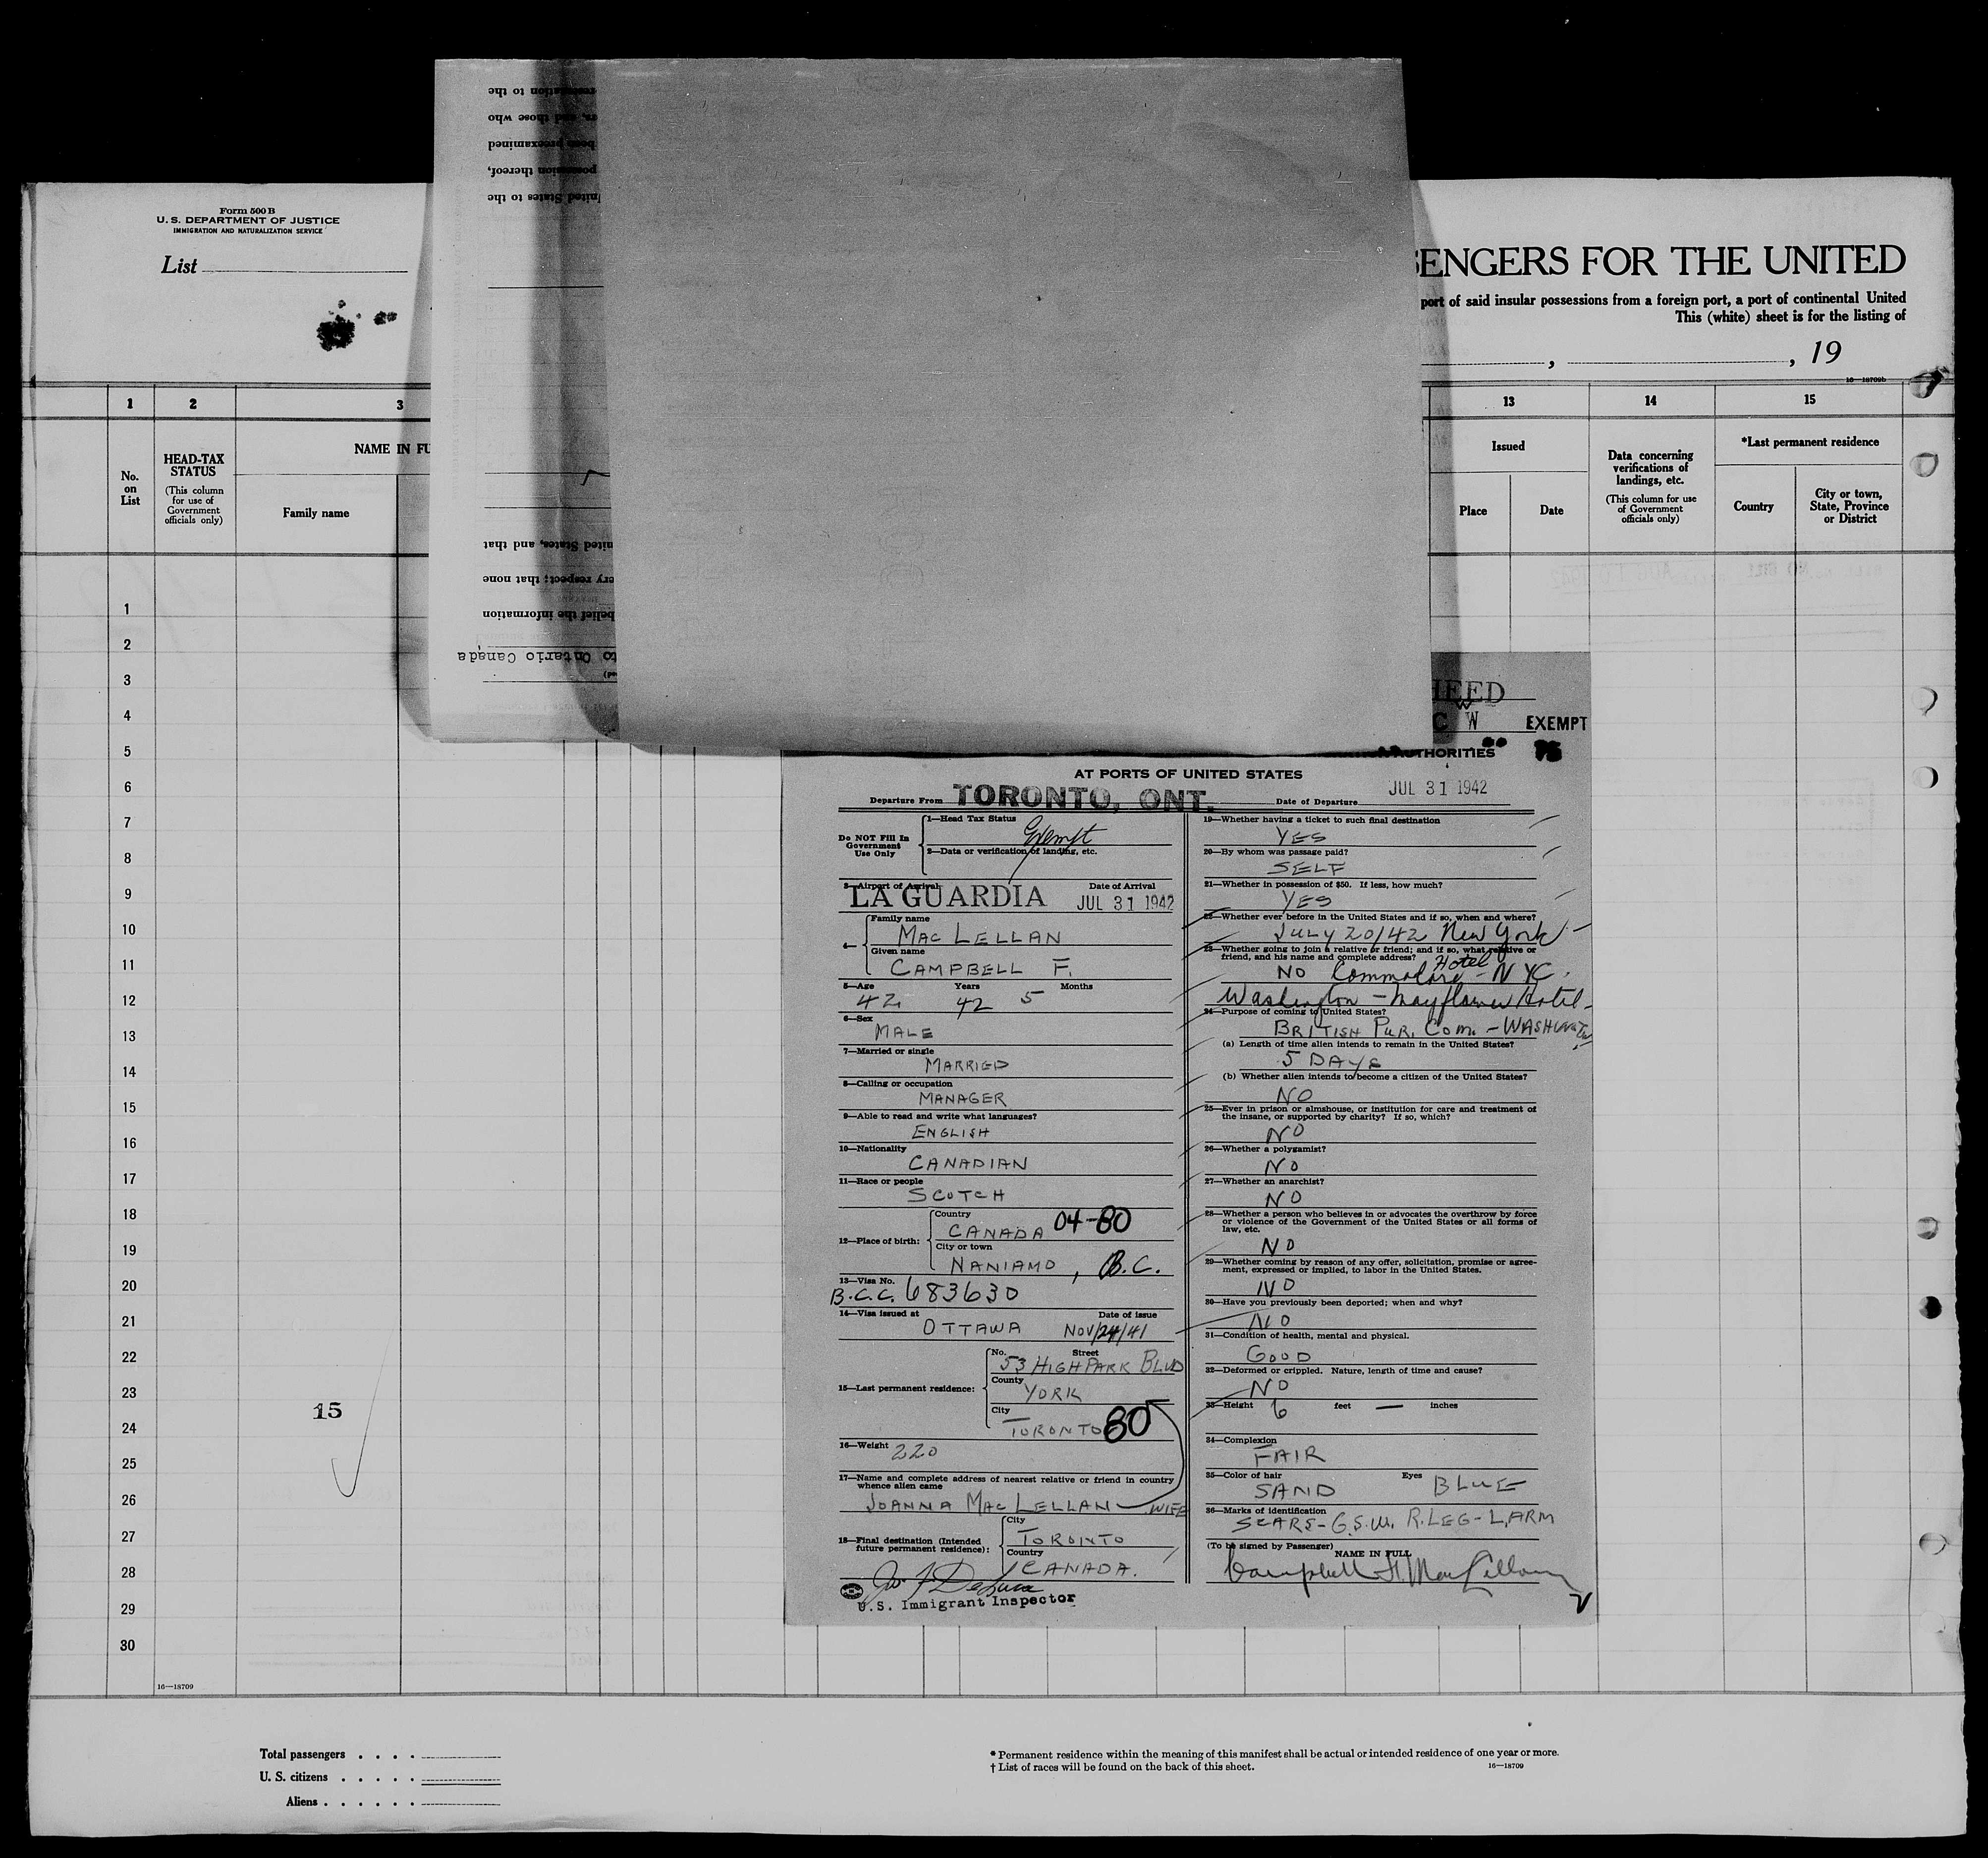 Form 500 B
U. S. DEPARTMENT OF JUSTICE
IMMIGRATION AND NATURALIZATION SERVICE
List
SENGERS FOR THE UNITED
port of said insular possessions from a foreign port, a port of continental United
This (white) sheet is for the listing of
, , 19
16—18709b
1 2 3 13 14 15
No. on List
HEAD-TAX STATUS
(This column for use of Government officials only)
NAME IN FU
Family name
Issued
Place Date
Data concerning verifications of landings, etc.
(This column for use of Government officials only)
*Last permanent residence
Country
City or town, State, Province or District
to the
those who
preexamined
thereof,
United States to the
United States, and that
ery respect; that none
belief the information
to Ontario Canada
1
2
3
4
5
6
7
8
9
10
11
12
13
14
15
16
17
18
19
20
21
22
23
24
25
26
27
28
29
30
15
16—18709
C W EXEMPT
AUTHORITIES
AT PORTS OF UNITED STATES
Departure From TORONTO, ONT. Date of Departure JUL 31 1942
Do NOT Fill In Government Use Only
1—Head Tax Status Exempt
2—Data or verification of landing, etc.
3—Airport of Arrival LA GUARDIA Date of Arrival JUL 31 1942
4—
Family name
MAC LELLAN
Given name
CAMPBELL F.
5—Age Years Months
42 42 5
6—Sex
MALE
7—Married or single
MARRIED
8—Calling or occupation
MANAGER
9—Able to read and write what languages?
ENGLISH
10—Nationality
CANADIAN
11—Race or people
SCOTCH
12—Place of birth:
Country
CANADA 04-80
City or town
NANIAMO, B.C.
13—Visa No.
B.C.C. 683630
14—Visa issued at Date of issue
OTTAWA NOV/24/41
15—Last permanent residence:
No. Street
53 HIGH PARK BLVD
County
YORK
City
TORONTO 80
16—Weight 220
17—Name and complete address of nearest relative or friend in country whence alien came
JOANNA MAC LELLAN — WIFE
18—Final destination (Intended future permanent residence):
City
TORONTO
Country
CANADA.
U.S. Immigrant Inspector
19—Whether having a ticket to such final destination
YES
20—By whom was passage paid?
SELF
21—Whether in possession of $50. If less, how much?
YES
22—Whether ever before in the United States and if so, when and where?
JULY 20/42 New York
23—Whether going to join a relative or friend; and if so, what relative or
friend, and his name and complete address?
NO Commodore Hotel - NYC.
Washington - Mayflower Hotel -
24—Purpose of coming to United States?
BRITISH PUR. COM. - WASHINGTON
(a) Length of time alien intends to remain in the United States?
5 DAYS
(b) Whether alien intends to become a citizen of the United States?
NO
25—Ever in prison or almshouse, or institution for care and treatment of
the insane, or supported by charity? If so, which?
NO
26—Whether a polygamist?
NO
27—Whether an anarchist?
NO
28—Whether a person who believes in or advocates the overthrow by force
or violence of the Government of the United States or all forms of
law, etc.
NO
29—Whether coming by reason of any offer, solicitation, promise or agree-
ment, expressed or implied, to labor in the United States.
NO
30—Have you previously been deported; when and why?
NO
31—Condition of health, mental and physical.
GOOD
32—Deformed or crippled. Nature, length of time and cause?
NO
33—Height 6 feet — inches
34—Complexion
FAIR
35—Color of hair Eyes
SAND BLUE
36—Marks of identification
SCARS - G.S.W. R. LEG - L. ARM
(To be signed by Passenger)
NAME IN FULL
Campbell F. MacLellan
Total passengers . . . .
U. S. citizens . . . . .
Aliens . . . . . .
* Permanent residence within the meaning of this manifest shall be actual or intended residence of one year or more.
† List of races will be found on the back of this sheet.
16—18709